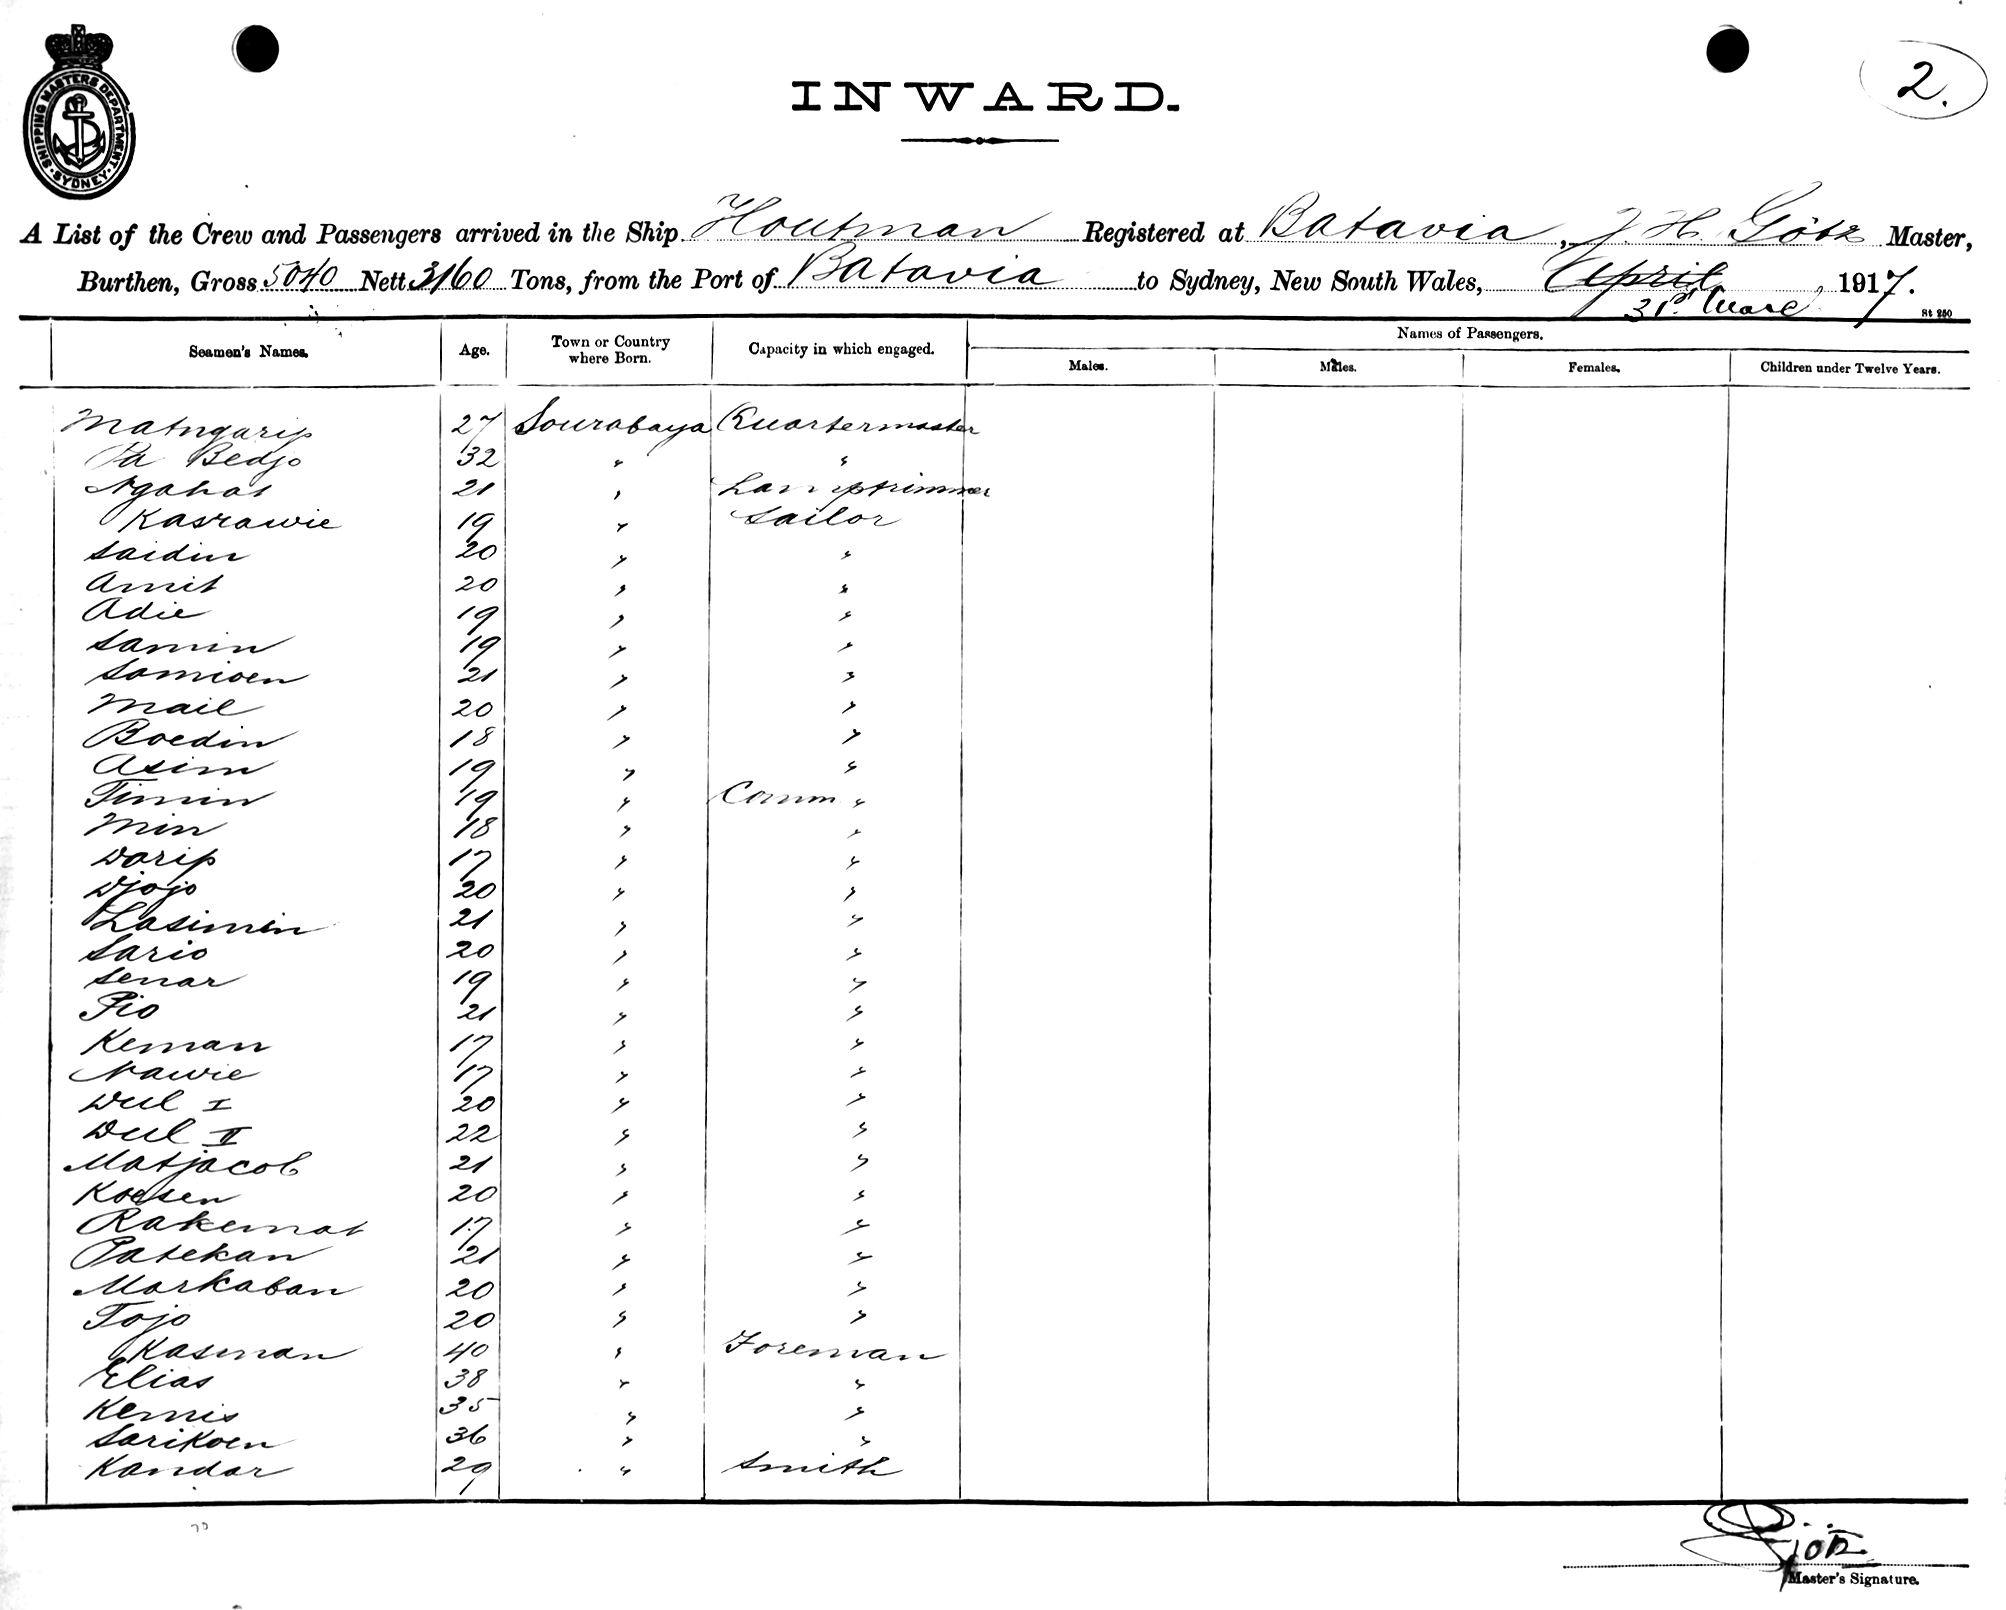 SHIPPING MASTERS DEPARTMENT
SYDNEY
2.
INWARD.
A List of the Crew and Passengers arrived in the Ship Houtman Registered at Batavia, J. H. Götz Master,
Burthen, Gross 5040 Nett 3160 Tons, from the Port of Batavia to Sydney, New South Wales, April 1917.
31st
St 250
Seamen's Names. Age. Town or Country where Born. Capacity in which engaged. Names of Passengers.
Males. Males. Females. Children under Twelve Years.
Matngarip 27 Sourabaya Quartermaster
Pa Bedjo 32 " "
Ngahat 21 " Lamptrimmer
Kasrawie 19 " Sailor
Saidin 20 " "
Amit 20 " "
Adie 19 " "
Samin 19 " "
Samioen 21 " "
Mail 20 " "
Boedin 18 " "
Asim 19 " "
Timin 19 " Comm "
Min 18 " "
Dorip 17 " "
Djojo 20 " "
Lasimin 21 " "
Sario 20 " "
Senar 19 " "
Pio 21 " "
Keman 17 " "
Nawie 17 " "
Dul I 20 " "
Dul II 22 " "
Matjacob 21 " "
Koesen 20 " "
Rakemat 17 " "
Patekan 21 " "
Markaban 20 " "
Tojo 20 " "
Kasman 40 " Foreman
Elias 38 " "
Kemis 35 " "
Sarikoen 36 " "
Kandar 29 " Smith
Götz
Master's Signature.